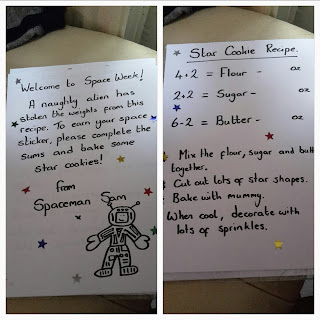 Welcome to Space Week!
A naughty alien has
stolen the weights from this
recipe. To earn your space
sticker, please complete the
sums and bake some
star cookies!
from
Spaceman Sam
Star Cookie Recipe.
4+2 = Flour - oz
2+2 = Sugar - oz
6-2 = Butter - oz
Mix the flour, sugar and butt
together.
Cut out lots of star shapes.
Bake with mummy.
When cool, decorate with
lots of sprinkles.